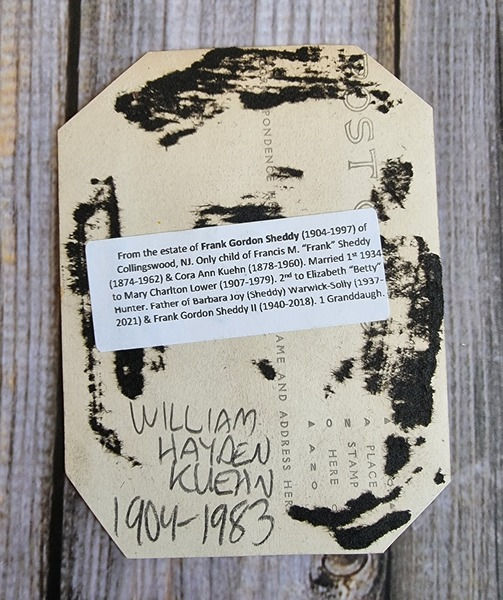 POST
PONDENCE
From the estate of Frank Gordon Sheddy (1904-1997) of
Collingswood, NJ. Only child of Francis M. "Frank" Sheddy
(1874-1962) & Cora Ann Kuehn (1878-1960). Married 1st 1934
to Mary Charlton Lower (1907-1979). 2nd to Elizabeth "Betty"
Hunter. Father of Barbara Joy (Sheddy) Warwick-Solly (1937-
2021) & Frank Gordon Sheddy II (1940-2018). 1 Granddaugh.
AME AND ADDRESS HER
PLACE
STAMP
HERE
AZO
WILLIAM
HAYDEN
KUEHN
1904-1983